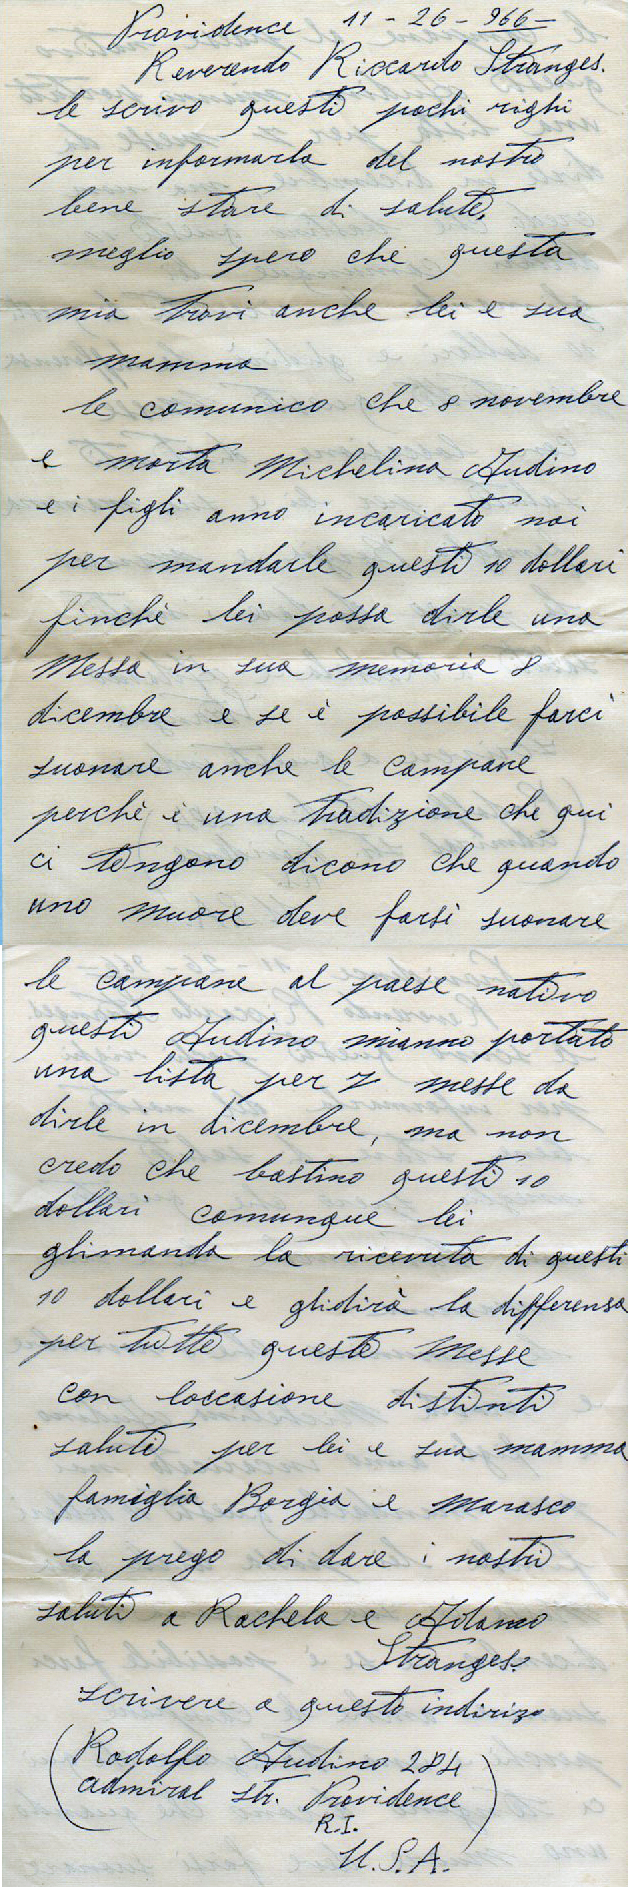 Providence 11 - 26 - 966 -
Reverendo Riccardo Stranges.
le scrivo questi pochi righi
per informarla del nostro
bene stare di salute,
meglio spero che questa
mia trovi anche lei e sua
mamma
le comunico che 8 novembre
e morta Michelina Audino
e i figli anno incaricato noi
per mandarle questi 10 dollari
finchè lei possa dirle una
Messa in sua memoria 8
dicembre e se è possibile farci
suonare anche le campane
perchè è una tradizione che qui
ci tengono dicono che quando
uno muore deve farsi suonare
le campane al paese nativo
questi Audino mianno portato
una lista per 7 messe da
dirle in dicembre, ma non
credo che bastino questi 10
dollari comunque lei
glimanda la ricevuta di questi
10 dollari e glidirà la differensa
per tutte queste Messe
con loccasione distinti
saluti per lei e sua mamma
famiglia Borgia e Marasco
la prego di dare i nostri
saluti a Rachela e Adamo
Stranges.
scrivere a questo indirizo
(Rodolfo Audino 284
admiral str. Providence
R.I.)
U.S.A.